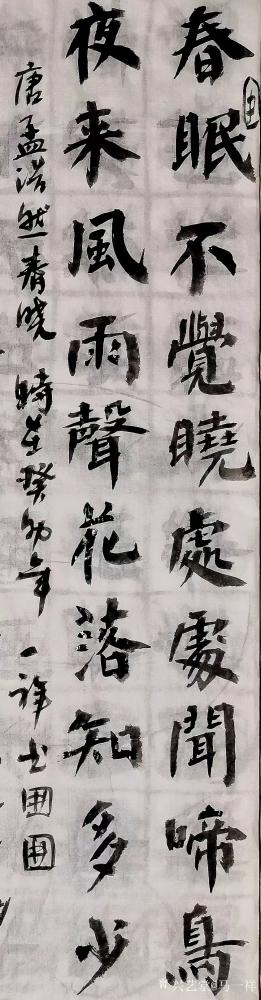 春眠不覺曉處處聞啼鳥
夜来風雨聲花落知多少
唐孟浩然春晓 時在癸卯年 一祥书
兴艺堂@马一样